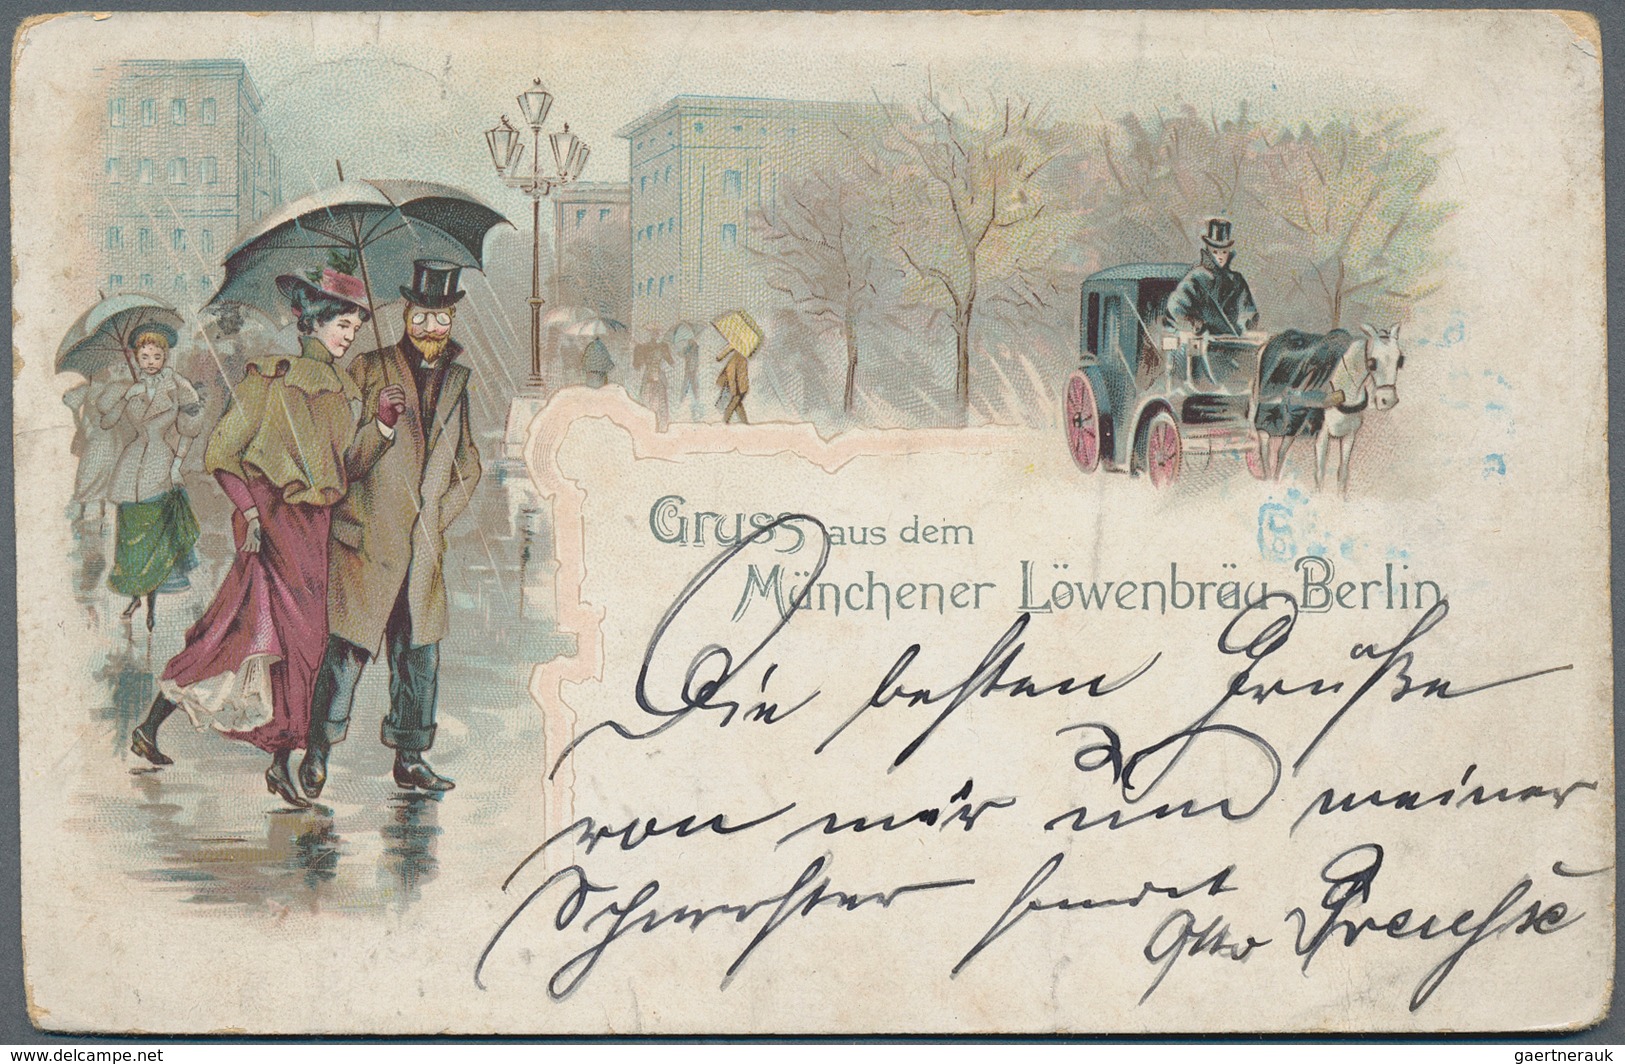 Gruss aus dem
Münchener Löwenbräu-Berlin
Die besten Grüße
von mir und meiner
Schwester sendet
Otto
delcampe.net
gaertnerauk